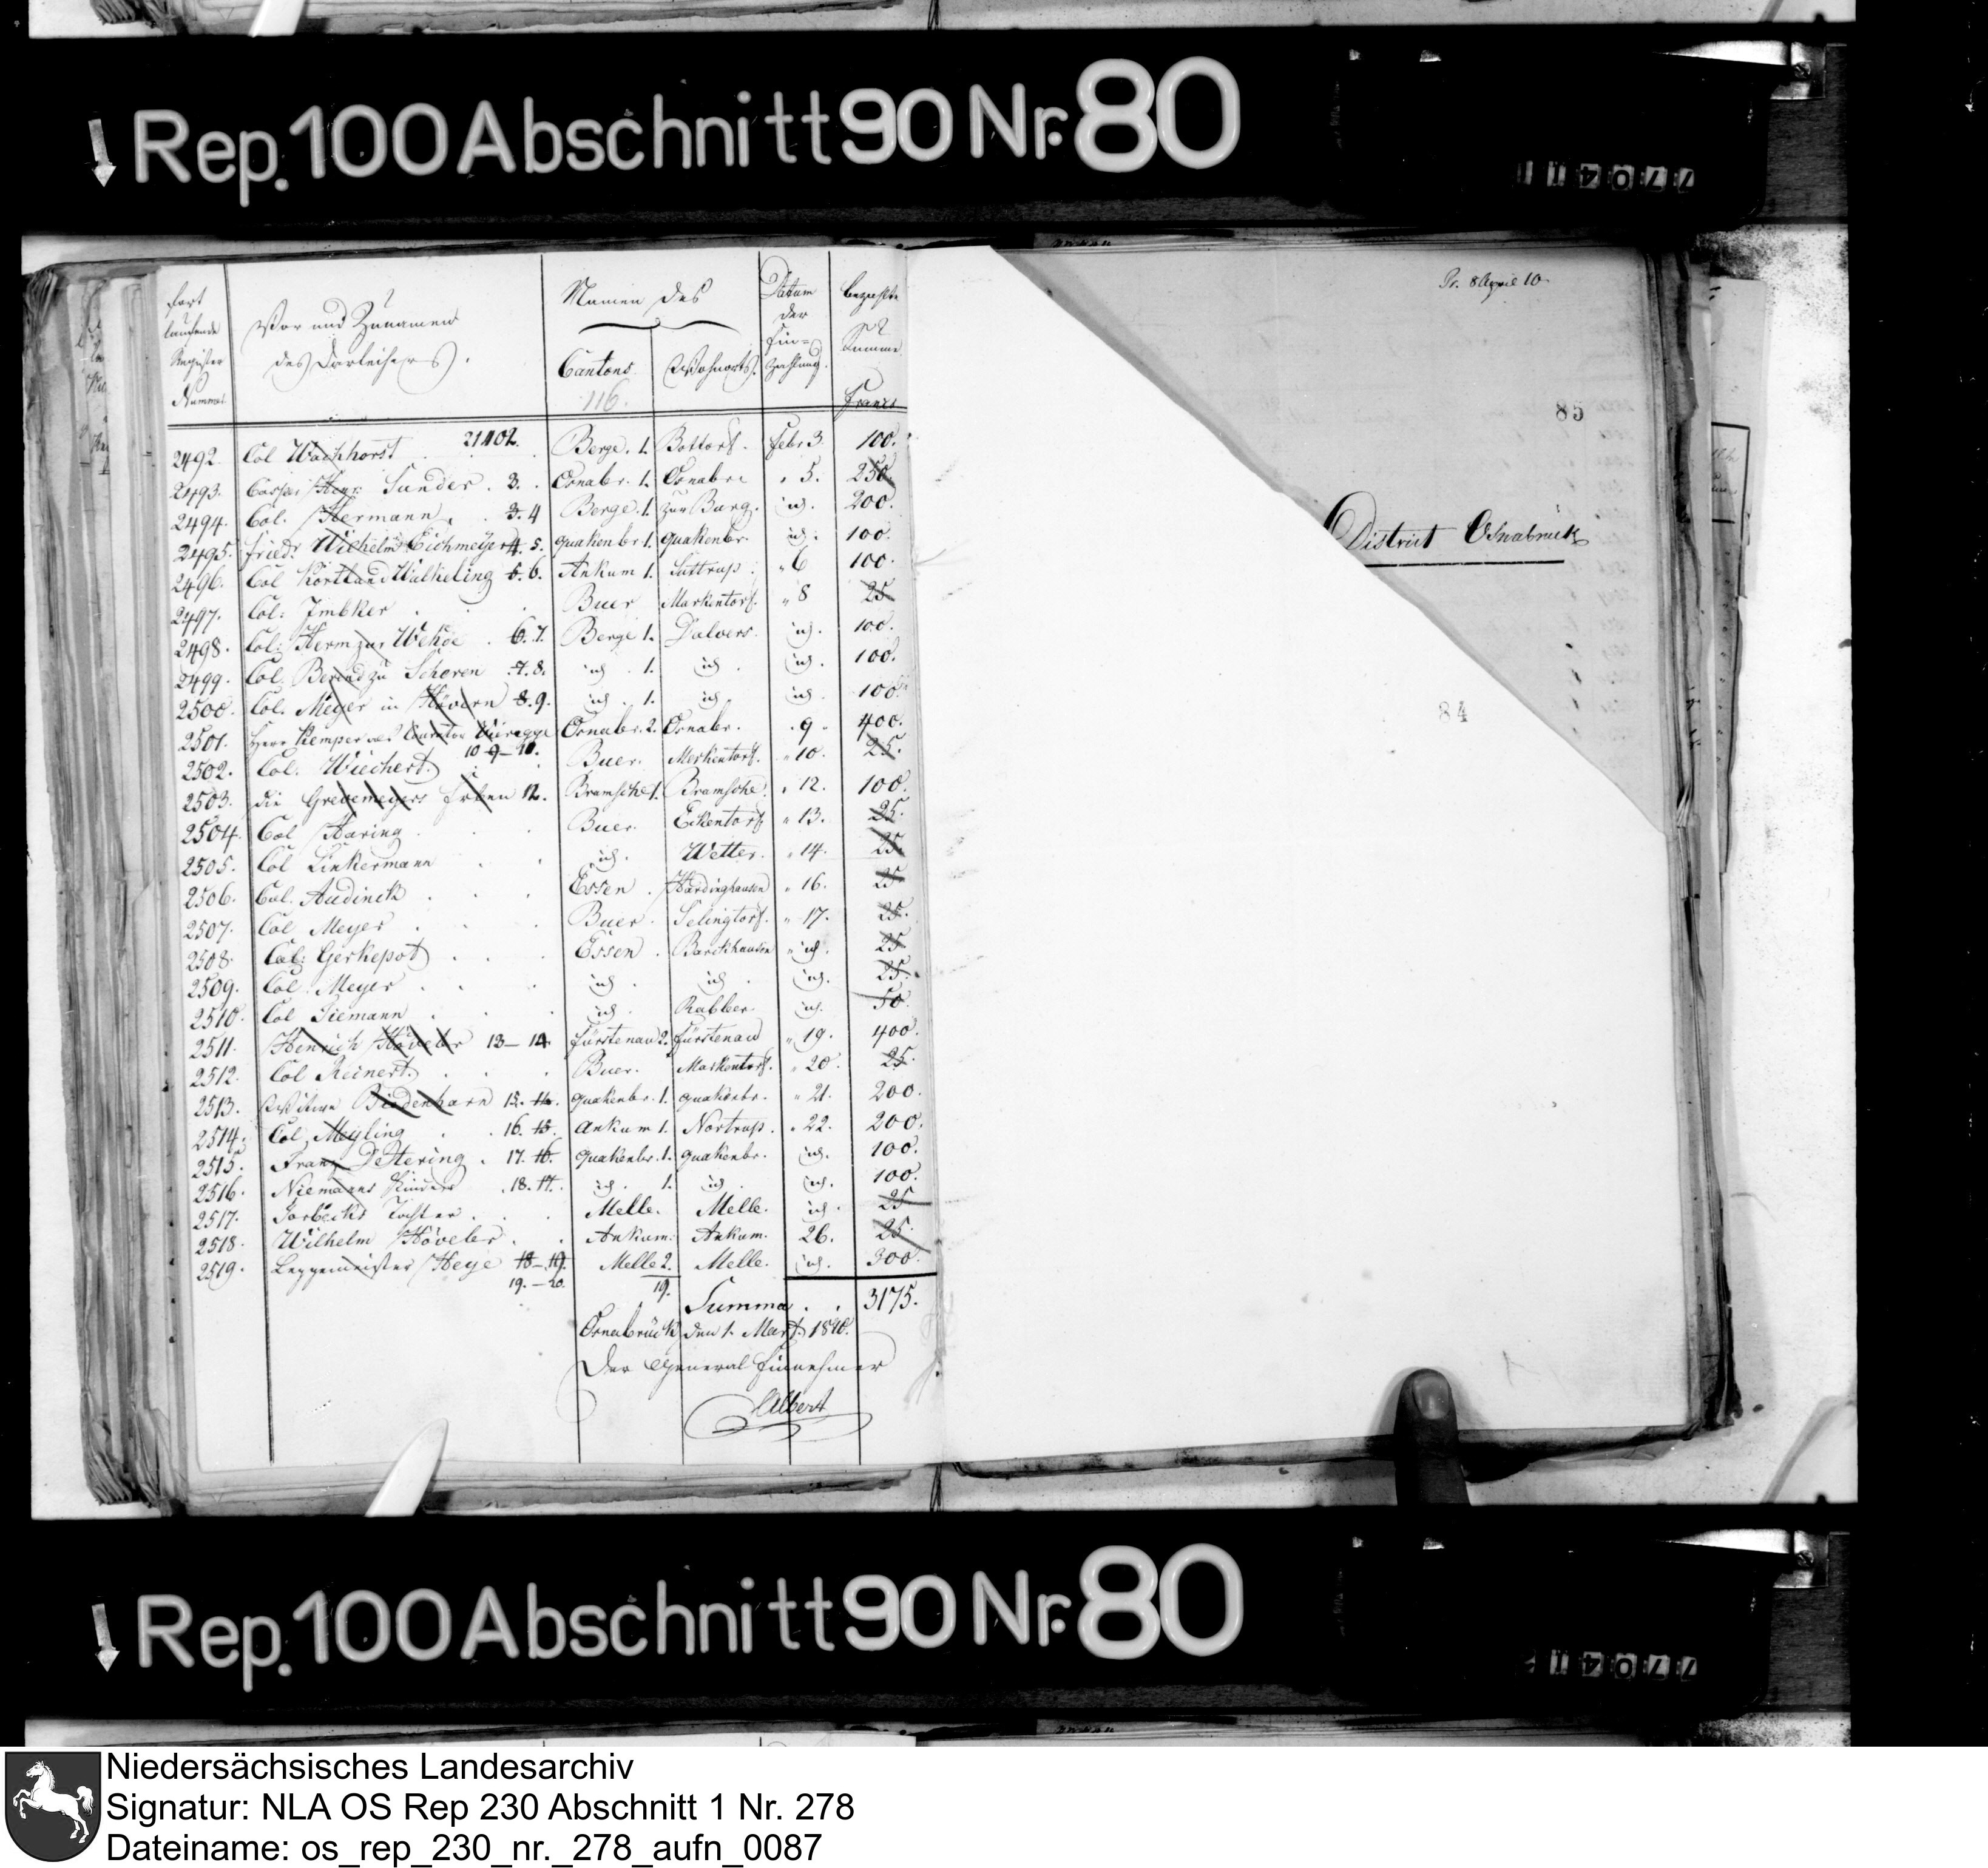 Rep. 100 Abschnitt 90 Nr. 80
Fort laufende Register Nummer
Vor und Zunamen des Darleihers.
Namen des
Cantons
Wohnorts.
Datum der Einzahlung.
bezahlte Summe
Francs
116.
2492. Col Wachhorst 21402. Berge. 1. Bottorf. Febr. 3. 100.
2493. Caspar Henr. Sunder. 3. Osnabr. 1. Osnabr. " 5. 250.
2494. Col. Hermann. 3. 4 Berge. 1. zur Burg. id. 200.
2495. Friedr Wilhelm Eichmeyer 4. 5. quakenbr 1. quakenbr. id. 100.
2496. Col Kortland Walkeling 5. 6. Ankum 1. Suttrup. " 6 100.
2497. Col: Imbker Buer Markentorf. " 8 25.
2498. Col: Herm zur Wehde 6. 7. Berge 1. Dalvers. id. 100.
2499. Col. Berend zu Schoren 7. 8. id. 1. id. id. 100.
2500. Col. Meyer in Hövern 8. 9. id. 1. id. id. 100.
2501. Herr Kemper als Curator Osnabr. 2. Osnabr. " 9. 400.
10 9 – 10.
2502. Col. Wiechert. Buer. Merkentorf. " 10. 25.
2503. die Gredemeyers Erben 12. Bramsche 1. Bramsche. " 12. 100.
2504. Col Haring Buer. Eikentorf " 13. 25.
2505. Col Linkermann id. Wetter. " 14. 25.
2506. Col. Audinck Essen. Hardinghausen " 16. 25
2507. Col Meyer Buer. Selingtorf. " 17. 25.
2508. Col: Gerkepot Essen. Barckhausen " id. 25
2509. Col. Meyer id. id. id. 25.
2510. Col Siemann id. Rabber. id. 50.
2511. Henrich Höveler 13 – 14 Fürstenau 2. Fürstenau " 19. 400.
2512. Col Reinert. Buer. Markentorf. " 20. 25.
2513. Witwe Biedenharn 15. 14. quakenbr. 1. quakenbr. " 21. 200.
2514. Col. Meyling 16. 15. Ankum 1. Nortrup. " 22. 200.
2515. Franz Dettering. 17. 16. quakenbr. 1. quakenbr. id. 100.
2516. Niemanns Kinder 18. 17. id. 1. id. id. 100.
2517. Tochter. Melle. Melle. id. 25
2518. Wilhelm Höveler. Ankum. Ankum. 26. 25.
2519. Leggemeister Heye 18 – 19. Melle 2. Melle. id. 300.
19. – 20.
19.
Summa 3175.
Osnabrück den 1. Mart. 1810.
Der General Einnehmer
Albert
Pr. 8 April 10.
85
District Osnabrück
84
Rep. 100 Abschnitt 90 Nr. 80
Niedersächsisches Landesarchiv
Signatur: NLA OS Rep 230 Abschnitt 1 Nr. 278
Dateiname: os_rep_230_nr._278_aufn_0087